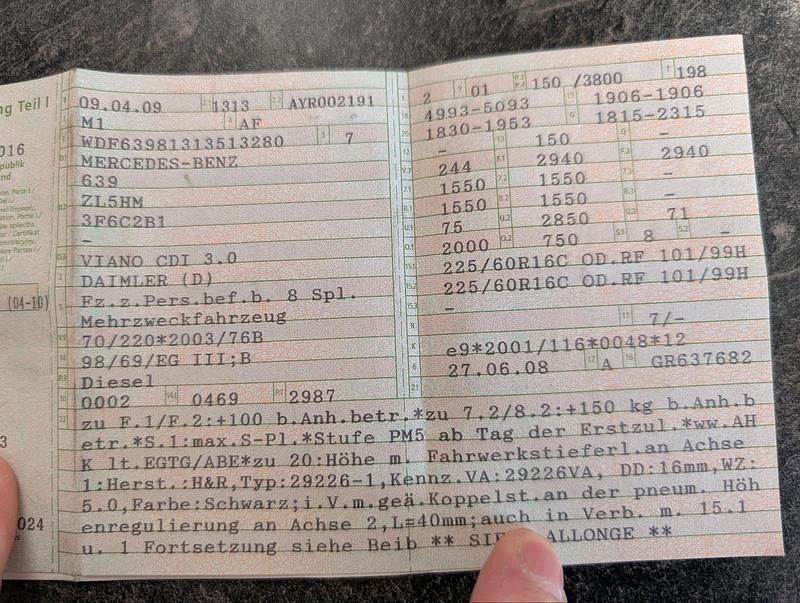 ng Teil I
016
publik
nd
(04-10)
3
024
B 09.04.09 2.1 1313 2.2 AYR002191
J M1 4 AF
E WDF63981313513280 3 7
D.1 MERCEDES-BENZ
639
D.2 ZL5HM
3F6C2B1
-
D.3 VIANO CDI 3.0
2 DAIMLER (D)
5 Fz.z.Pers.bef.b. 8 Spl.
Mehrzweckfahrzeug
V.9 70/220*2003/76B
14 98/69/EG III;B
P.3 Diesel
10 0002 14.1 0469 P.1 2987
L 2 9 01 P.2 P.4 150 /3800 T 198
18 4993-5093 19 1906-1906
20 1830-1953 G 1815-2315
12 - 13 150 Q -
V.7 244 F.1 2940 F.2 2940
7.1 1550 7.2 1550 7.3 -
8.1 1550 8.2 1550 8.3 -
U.1 75 U.2 2850 U.3 71
O.1 2000 O.2 750 S.1 8 S.2 -
15.1 225/60R16C OD.RF 101/99H
15.2 225/60R16C OD.RF 101/99H
15.3 -
R 11 7/-
K e9*2001/116*0048*12
6 27.06.08 17 A 16 GR637682
21
22 zu F.1/F.2:+100 b.Anh.betr.*zu 7.2/8.2:+150 kg b.Anh.b
etr.*S.1:max.S-Pl.*Stufe PM5 ab Tag der Erstzul.*ww.AH
K lt.EGTG/ABE*zu 20:Höhe m. Fahrwerkstieferl.an Achse
1:Herst.:H&R,Typ:29226-1,Kennz.VA:29226VA, DD:16mm,WZ:
5.0,Farbe:Schwarz;i.V.m.geä.Koppelst.an der pneum. Höh
enregulierung an Achse 2,L=40mm;auch in Verb. m. 15.1
u. 1 Fortsetzung siehe Beib ** ALLONGE **